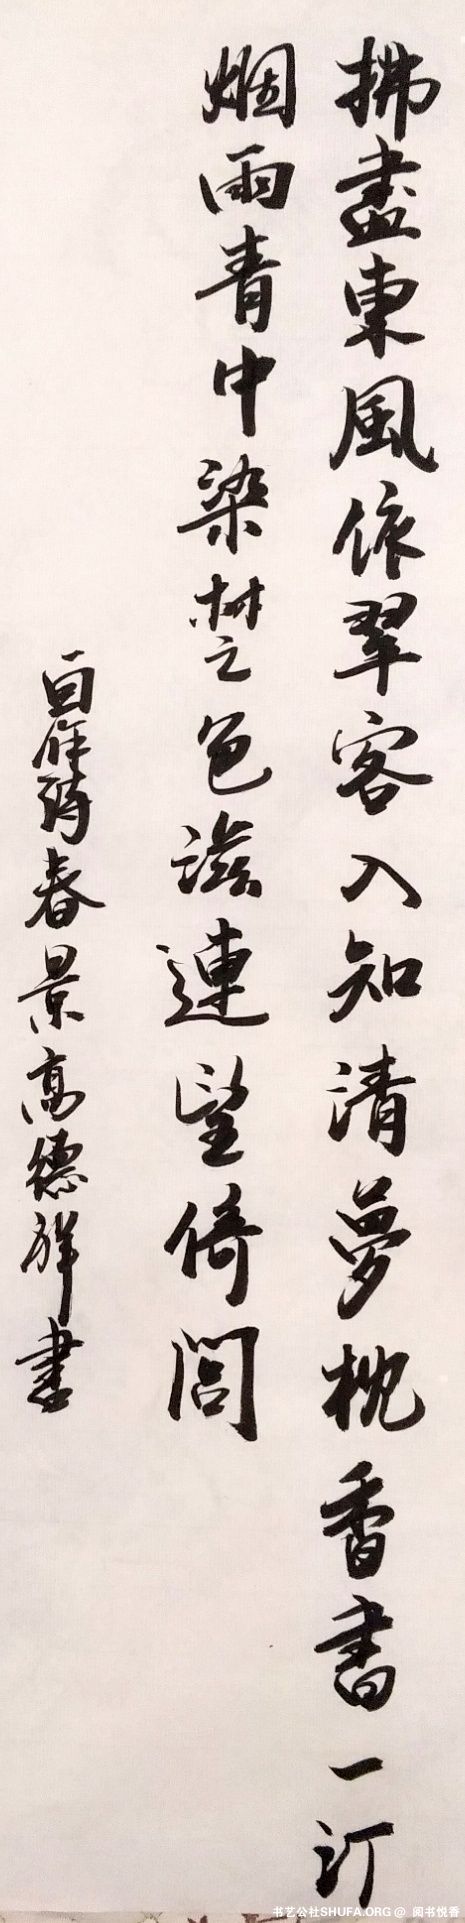 拂盡東風依翠客入知清夢枕香書一汀
烟雨青中染楚色滋連望倚閭
自作詩春景高德祥書
书艺公社SHUFA.ORG @ 阅书悦香